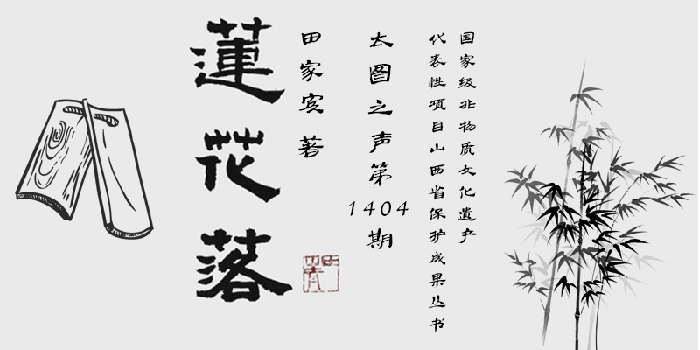 国家级非物质文化遗产
代表性项目山西省保护成果丛书
太图之声第1404期
田家宾 著
蓮花落